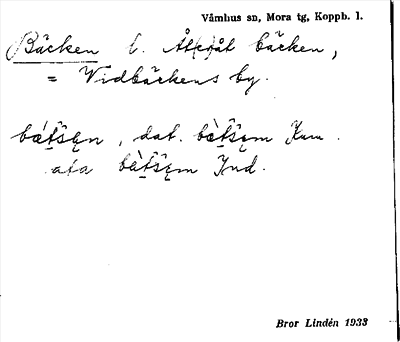 Våmhus sn, Mora tg, Koppb. l.
Bäcken l. Åt(e)åt bäcken,
= Vidbäckens by.
bǽt̯s̆ęn, dat. bæ̀t̯s̆ęm Kum.
ata bæ̀t̯s̆ęm Ind.
Bror Lindén 1933